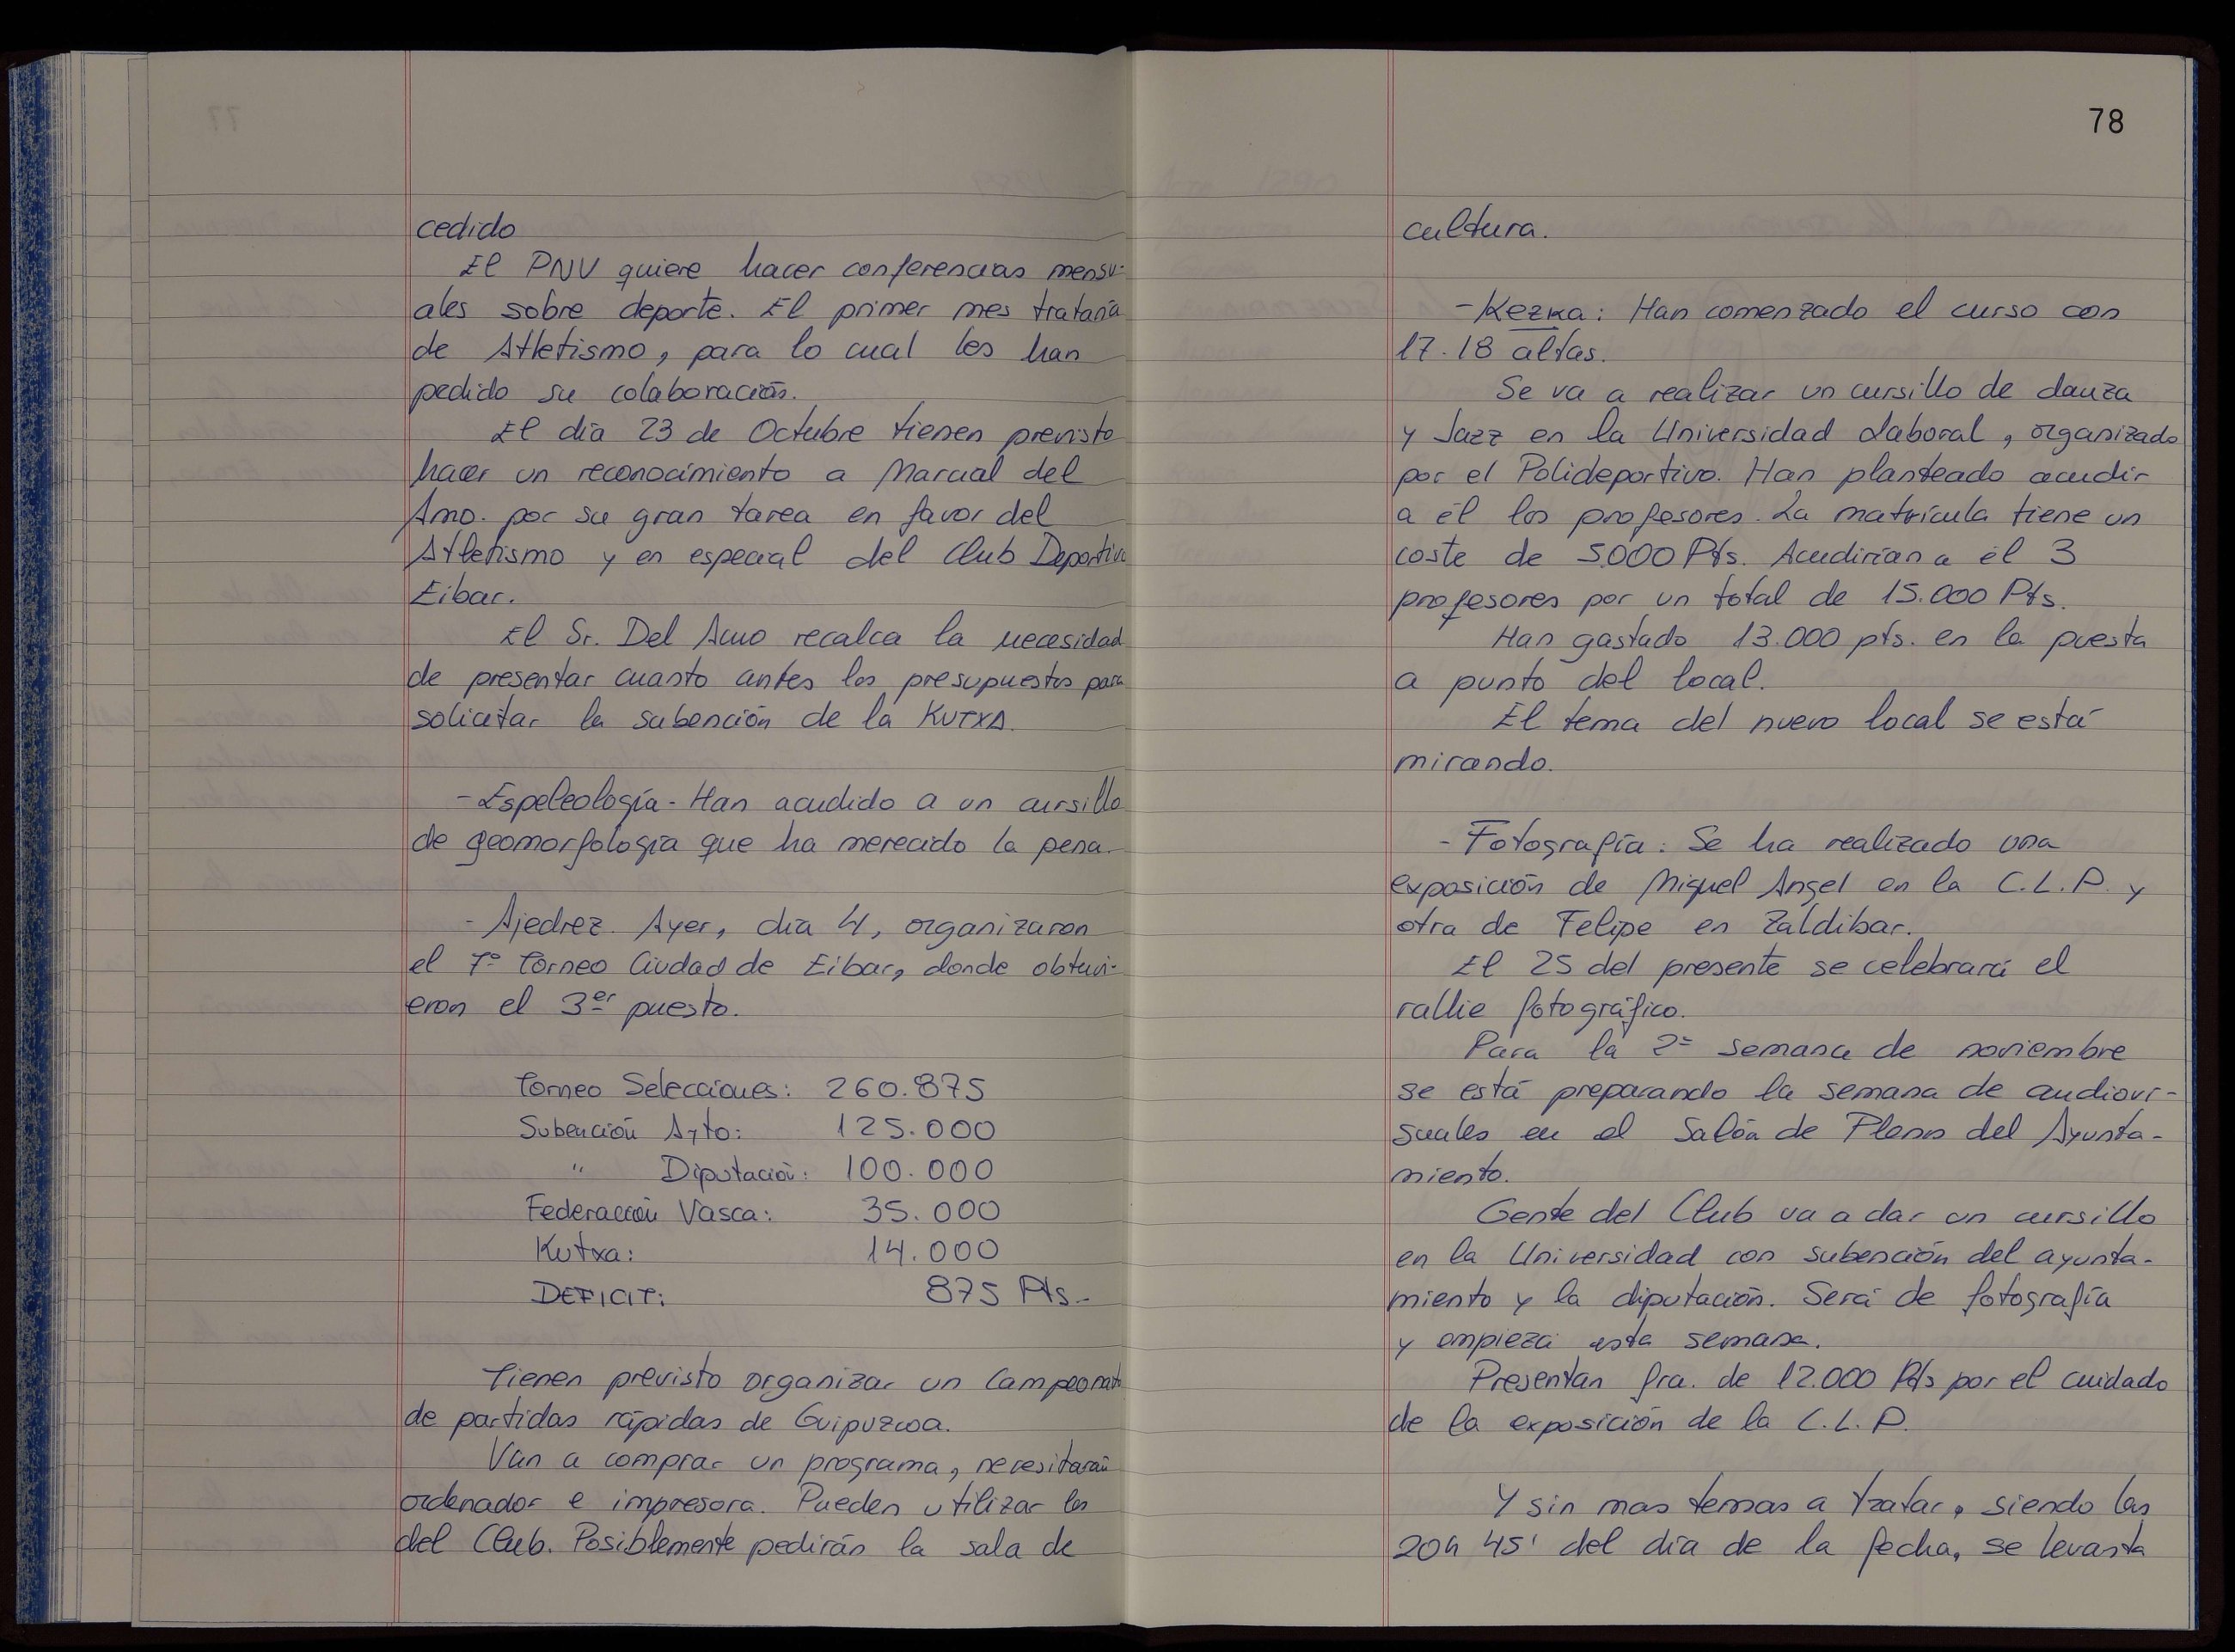 cedido
El PNV quiere hacer conferencias mensu-
ales sobre deporte. El primer mes trataría
de Atletismo, para lo cual les han
pedido su colaboración.
El día 23 de Octubre tienen previsto
hacer un reconocimiento a Marcial del
Amo. por su gran tarea en favor del
Atletismo y en especial del Club Deportivo
Eibar.
El Sr. Del Amo recalca la necesidad
de presentar cuanto antes los presupuestos para
solicitar la subención de la KUTXA.
- Espeleología - Han acudido a un cursillo
de geomorfología que ha merecido la pena.
- Ajedrez. Ayer, día 4, organizaron
el 7º Torneo Ciudad de Eibar, donde obtuvi-
eron el 3er puesto.
Torneo Selecciones: 260.875
Subención Ayto: 125.000
" Diputación: 100.000
Federación Vasca: 35.000
Kutxa: 14.000
DEFICIT: 875 Pts.-
Tienen previsto organizar un Campeonato
de partidas rápidas de Guipuzcoa.
Van a comprar un programa, necesitarán
ordenador e impresora. Pueden utilizar los
del Club. Posiblemente pedirán la sala de
78
cultura.
- Kezka: Han comenzado el curso con
17.18 altas.
Se va a realizar un cursillo de danza
y Jazz en la Universidad Laboral, organizado
por el Polideportivo. Han planteado acudir
a él los profesores. La matrícula tiene un
coste de 5.000 Pts. Acudirían a él 3
profesores por un total de 15.000 Pts.
Han gastado 13.000 pts. en la puesta
a punto del local.
El tema del nuevo local se está
mirando.
- Fotografía: Se ha realizado una
exposición de Miguel Angel en la C.L.P. y
otra de Felipe en Zaldibar.
El 25 del presente se celebrará el
rallie fotográfico.
Para la 2ª semana de noviembre
se está preparando la semana de audiovi-
suales en el Salón de Plenos del Ayunta-
miento.
Gente del Club va a dar un cursillo
en la Universidad con subención del ayunta-
miento y la diputación. Será de fotografía
y empieza esta semana.
Presentan fra. de 12.000 Pts por el cuidado
de la exposición de la C.L.P.
Y sin mas temas a tratar, siendo las
20h 45' del día de la fecha, se levanta